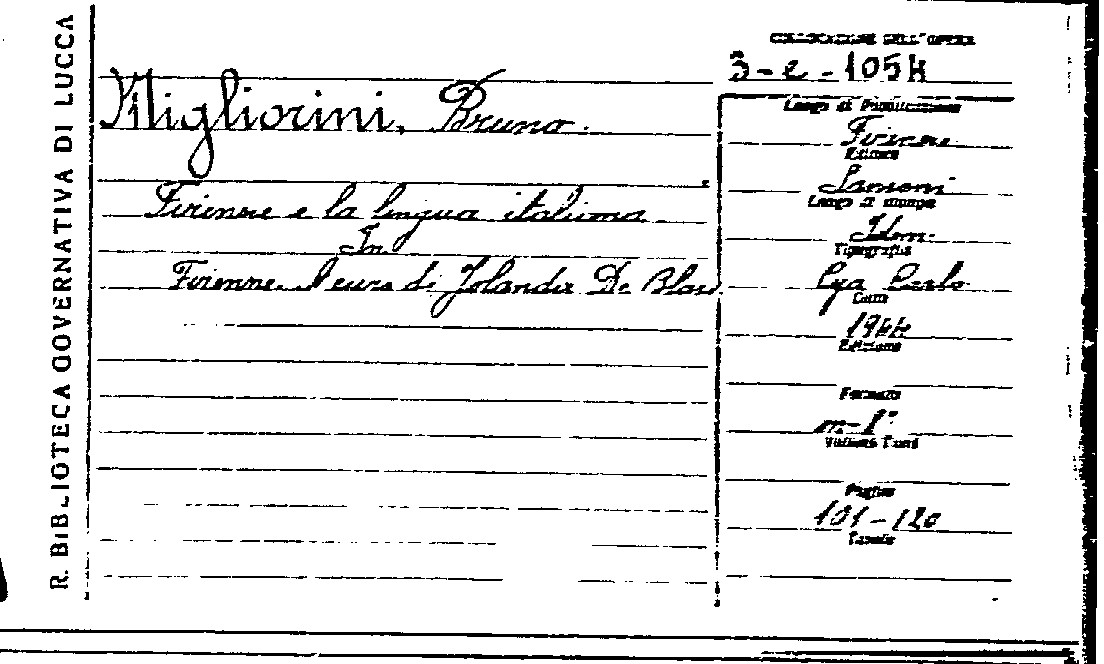 R. BIBLIOTECA GOVERNATIVA DI LUCCA
COLLOCAZIONE DELL'OPERA
3-e-1054
Migliorini, Bruno.
Firenze e la lingua italiana
In
Firenze. A cura di Jolanda De Blasi.
Luogo di Pubblicazione
Firenze
Editore
Sansoni
Luogo di stampa
Idem.
Tipografia
Eya Carlo
Data
1944
Edizione
Formato
m-8°
Volumi Tomi
Pagine
101-120
Tavole